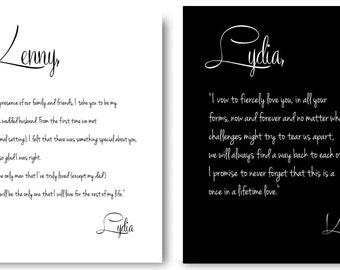 Lenny,
presence of our family and friends, I take you to be my
wedded husband. From the first time we met
setting), I felt that there was something special about you,
so glad I was right.
only man that I've truly loved (except my dad)
will be the only one that I will love for the rest of my life."
Lydia
Lydia,
"I vow to fiercely love you, in all your
forms, now and forever and no matter wh
challenges might try to tear us apart,
we will always find a way back to each o
I promise to never forget that this is a
once in a lifetime love."